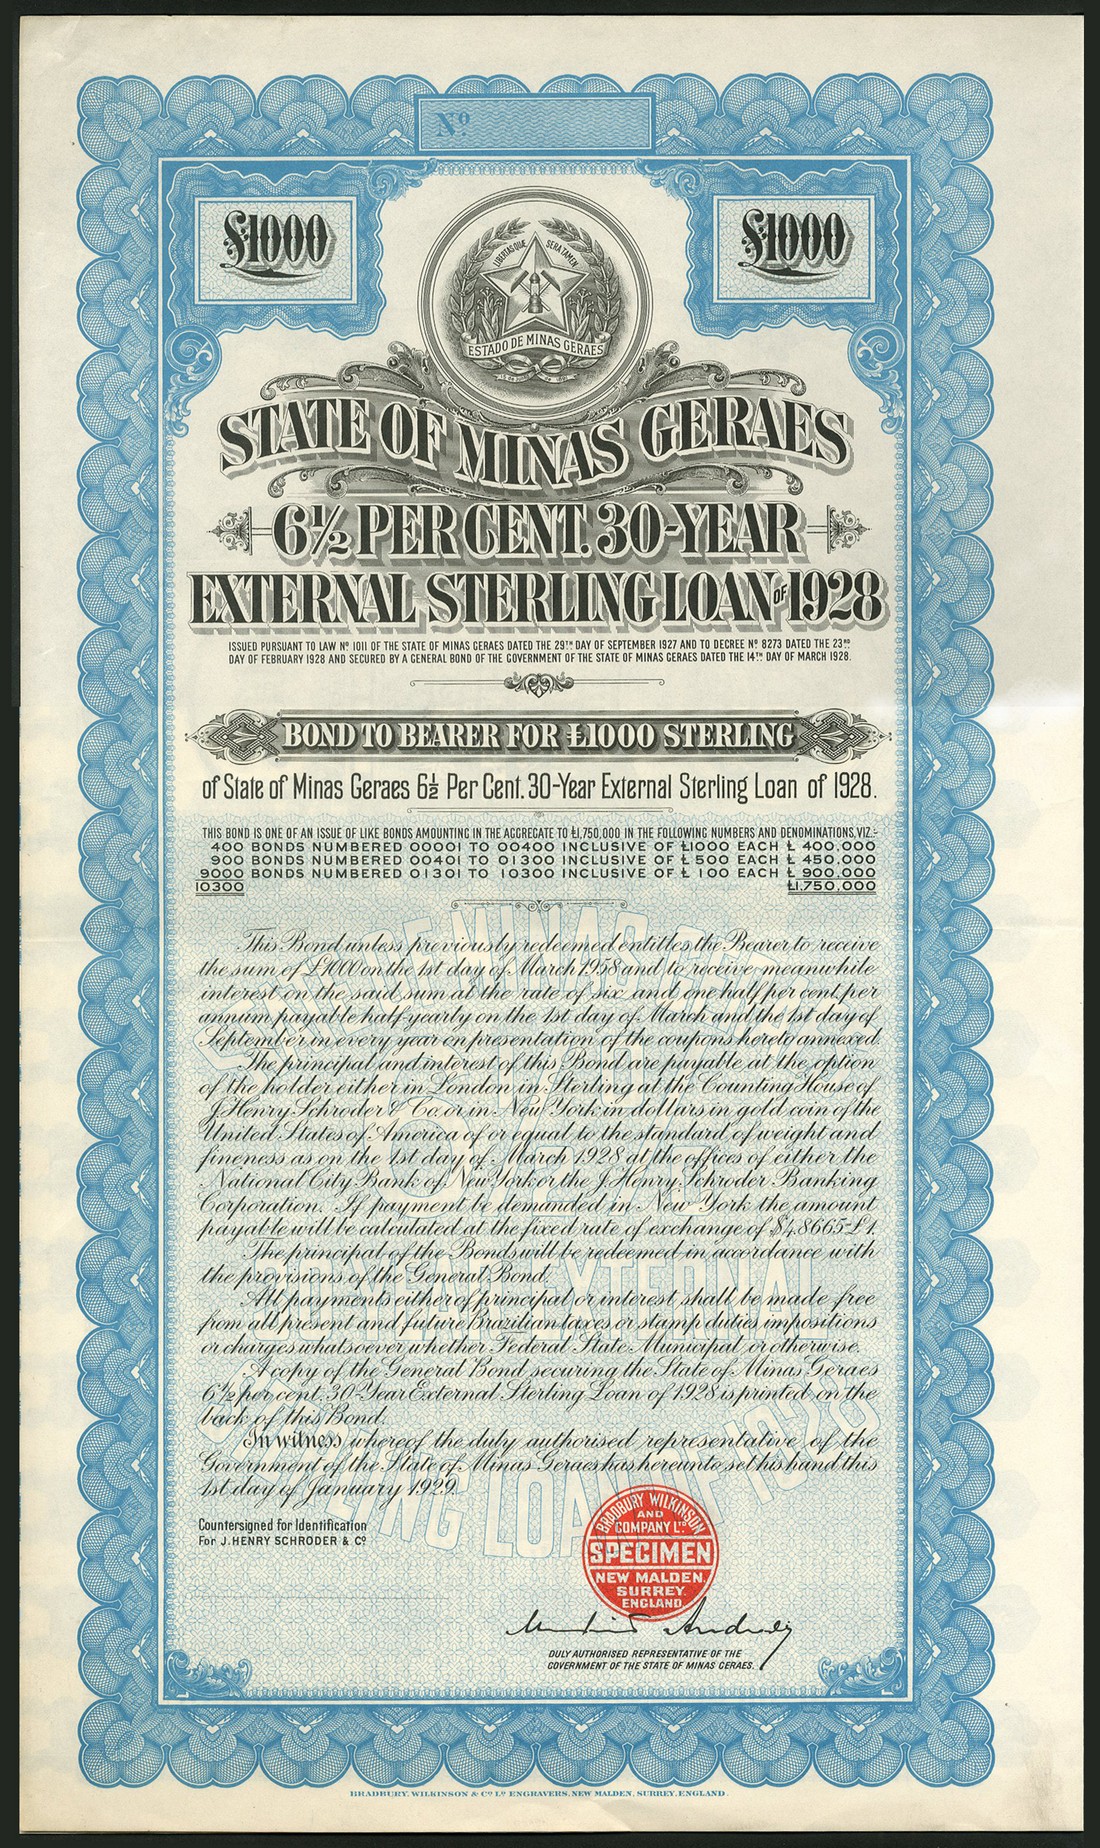 Nº
£1000
£1000
LIBERTAS QUÆ SERA TAMEN
ESTADO DE MINAS GERAES
STATE OF MINAS GERAES
6½ PER CENT. 30-YEAR
EXTERNAL STERLING LOAN OF 1928
ISSUED PURSUANT TO LAW Nº 1011 OF THE STATE OF MINAS GERAES DATED THE 29TH DAY OF SEPTEMBER 1927 AND TO DECREE Nº 8273 DATED THE 23RD
DAY OF FEBRUARY 1928 AND SECURED BY A GENERAL BOND OF THE GOVERNMENT OF THE STATE OF MINAS GERAES DATED THE 14TH DAY OF MARCH 1928.
BOND TO BEARER FOR £1000 STERLING
of State of Minas Geraes 6½ Per Cent. 30-Year External Sterling Loan of 1928.
THIS BOND IS ONE OF AN ISSUE OF LIKE BONDS AMOUNTING IN THE AGGREGATE TO £1,750,000 IN THE FOLLOWING NUMBERS AND DENOMINATIONS, VIZ.:-
400 BONDS NUMBERED 00001 TO 00400 INCLUSIVE OF £1000 EACH £ 400,000
900 BONDS NUMBERED 00401 TO 01300 INCLUSIVE OF £ 500 EACH £ 450,000
9000 BONDS NUMBERED 01301 TO 10300 INCLUSIVE OF £ 100 EACH £ 900,000
10300 £1,750,000
This Bond unless previously redeemed entitles the Bearer to receive
the sum of £1000 on the 1st day of March 1958 and to receive meanwhile
interest on the said sum at the rate of six and one half per cent. per
annum payable half-yearly on the 1st day of March and the 1st day of
September in every year on presentation of the coupons hereto annexed.
The principal and interest of this Bond are payable at the option
of the holder either in London in Sterling at the Counting House of
J. Henry Schroder & Co. or in New York in dollars in gold coin of the
United States of America of or equal to the standard of weight and
fineness as on the 1st day of March 1928 at the offices of either the
National City Bank of New York or the J. Henry Schroder Banking
Corporation. If payment be demanded in New York the amount
payable will be calculated at the fixed rate of exchange of $4.8665=£1.
The principal of the Bonds will be redeemed in accordance with
the provisions of the General Bond.
All payments either of principal or interest shall be made free
from all present and future Brazilian taxes or stamp duties impositions
or charges whatsoever whether Federal State Municipal or otherwise.
A copy of the General Bond securing the State of Minas Geraes
6½ per cent. 30-Year External Sterling Loan of 1928 is printed on the
back of this Bond.
In witness whereof the duly authorised representative of the
Government of the State of Minas Geraes has hereunto set his hand this
1st day of January 1929.
Countersigned for Identification
For J. HENRY SCHRODER & Cº
BRADBURY WILKINSON
AND
COMPANY LTD
SPECIMEN
NEW MALDEN,
SURREY,
ENGLAND.
DULY AUTHORISED REPRESENTATIVE OF THE
GOVERNMENT OF THE STATE OF MINAS GERAES.
BRADBURY, WILKINSON & Cº Lº ENGRAVERS, NEW MALDEN, SURREY, ENGLAND.